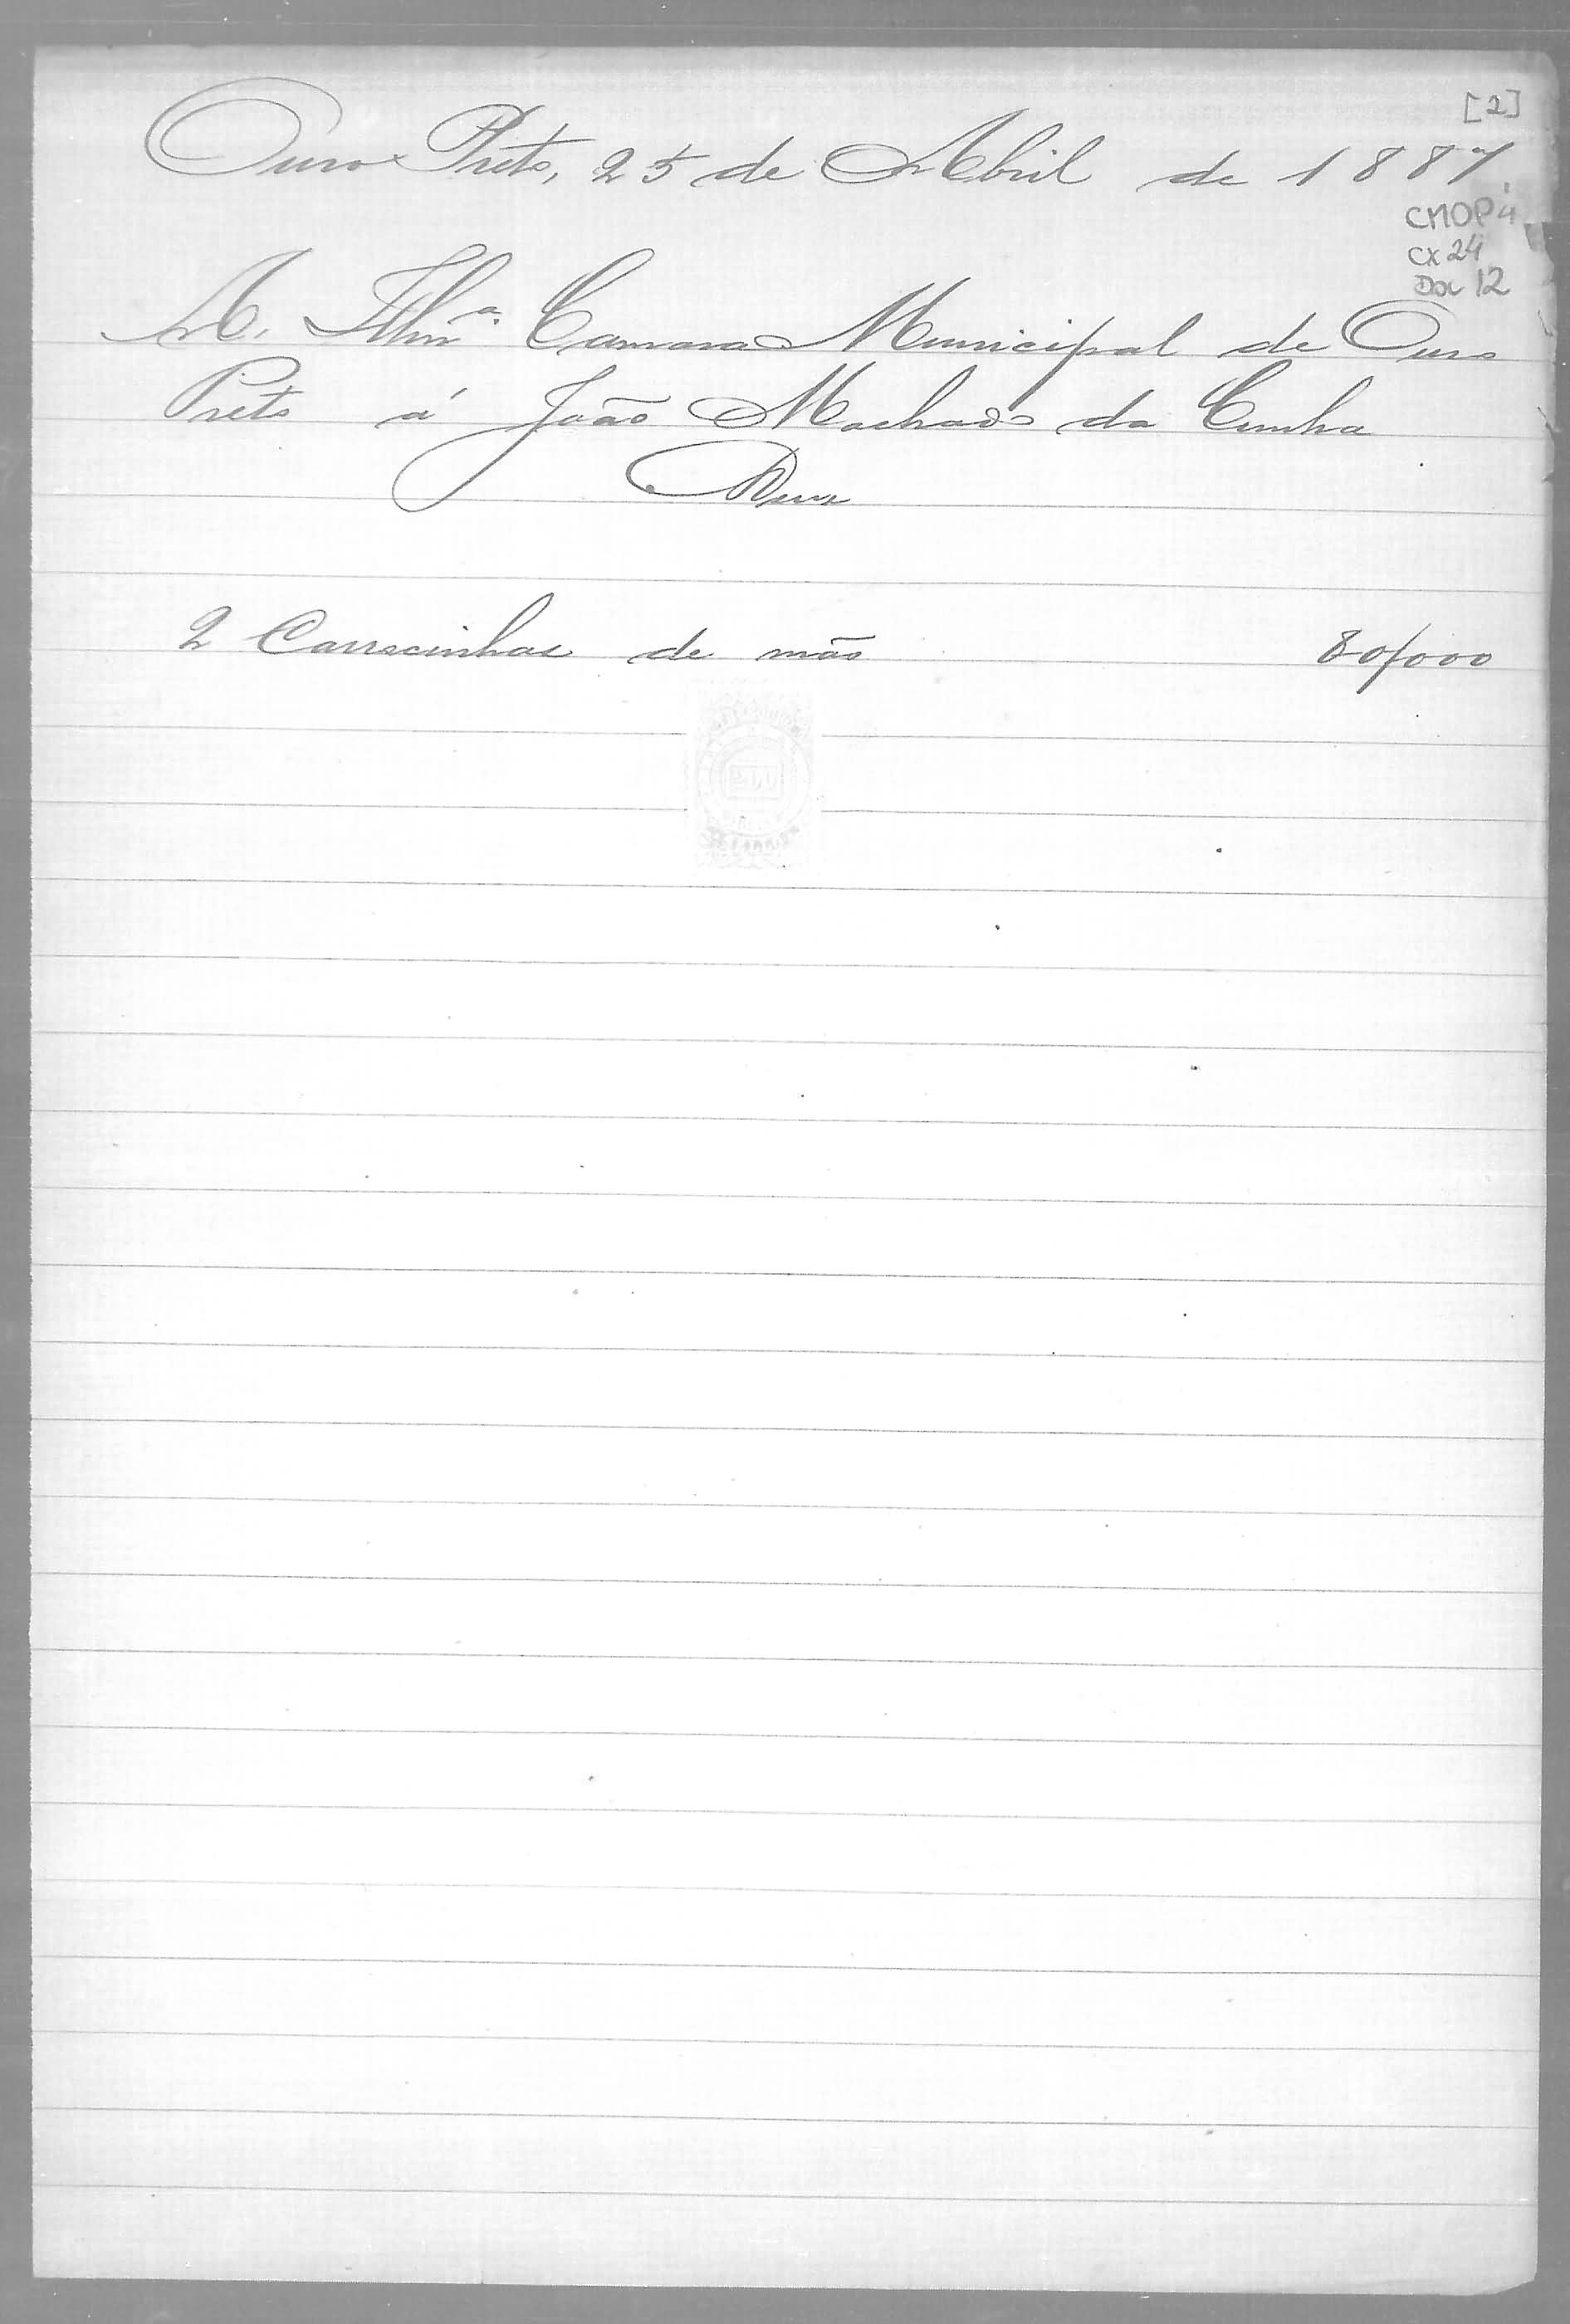 [2]
Ouro Preto, 25 de Abril de 1887.
CMOP 4
CX 24
Doc 12
A. Illmª Camara Municipal de Ouro
Preto á João Machado da Cunha
Deve
2 Carrocinhas de mão 80/000
200